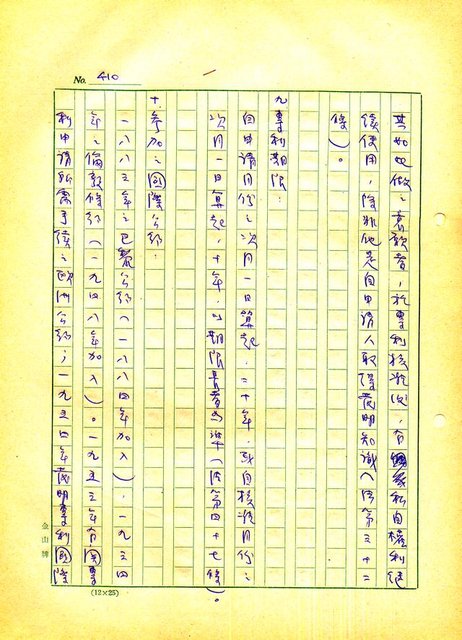 No. 410
其如此做之意欲者，於專利核准後，有權利繼
續使用，除非他是自申請人取得發明知識（法第三十二
條）。
九、專利期限：
自申請月份之次月一日算起，二十年，或自核准月份之
次月一日算起，十年，以期限長者為準（法第四十七條）。
十、參加之國際公約：
一八八三年之巴黎公約（一八八四年加入），一九三四
年之倫敦修約（一九四八年加入）。一九五三年有關專
利申請所需手續之歐洲公約；一九五四年發明專利國際
金山牌
(12×25)